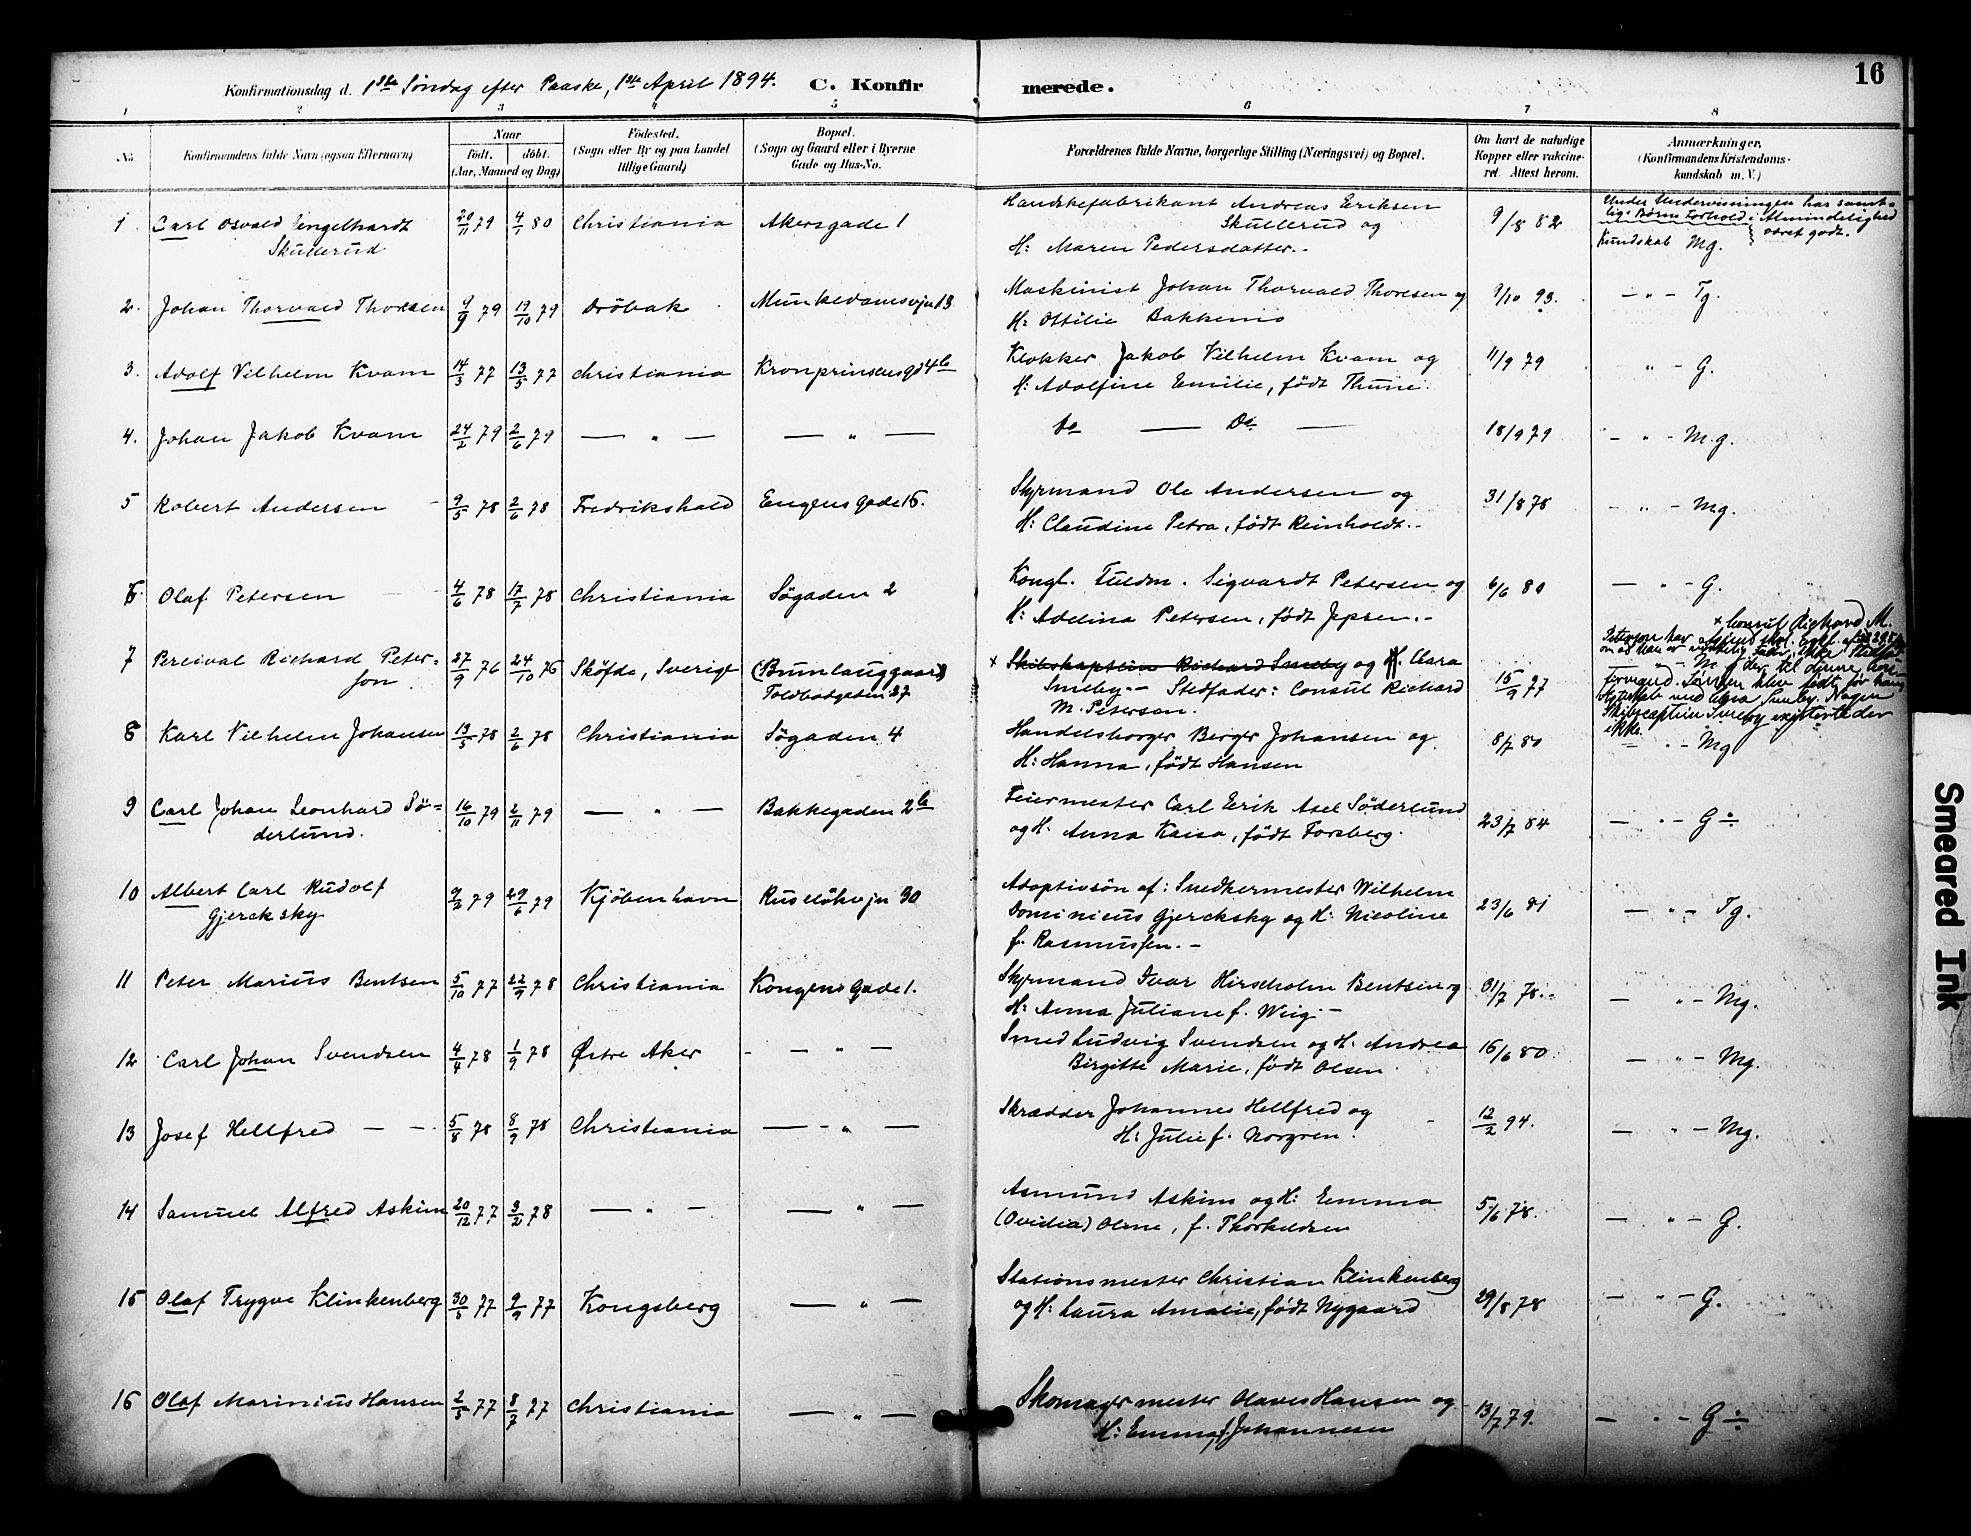 16
Konfirmationsdag d. 1ste Søndag efter Paaske, 1ste April 1894. C. Konfirmerede.
1 2 3 4 5 6 7 8
No. Konfirmandens fulde Navn (ogsaa Efternavn) Naar født. døbt. (Aar, Maaned og Dag) Fødested. (Sogn eller By og paa Landet tillige Gaard) Bopæl. (Sogn og Gaard eller i Byerne Gade og Hus-No. Forældrenes fulde Navne, borgerlige Stilling (Næringsvei) og Bopæl. Om havt de naturlige Kopper eller vakcineret. Attest herom. Anmærkninger, (Konfirmandens Kristendomskundskab m. V.)
1 Carl Osvald Engelhardt 20/11 79 4/1 80 Christiania Akersgade 1 Handskefabrikant Andreas Eriksen 9/8 82 Under Undervisningen har samt-
Skullerud Skullerud og lige Børns Forhold i Almindelighed
H: Maren Pedersdatter.- Kundskab Mg. været godt.
2. Johan Thorvald Thoresen 9/9 79 19/10 79 Drøbak Munkedamsvjn 13 Maskinist Johan Thorvald Thoresen og 9/10 93. - " - Tg.
H: Ottilie Bakkenis
3. Adolf Vilhelm Kvam 14/3 77 13/5 77 Christiania Kronprinsensgd 4b Klokker Jakob Vilhelm Kvam og 11/9 79 " - G.
H: Adolfine Emilie, født Thune.
4. Johan Jakob Kvam 24/2 79 2/6 79 — " — — " — Do — Do — 18/9 79 - " - M.g.
5 Robert Andersen 9/5 78 2/6 78 Fredrikshald Engensgade 16. Styrmand Ole Andersen og 31/8 78 - " - Mg.
H: Claudine Petra, født Reinholdt.-
6. Olaf Petersen 4/6 78 17/7 78 Christiania Søgaden 2 Kongl. Fuldm. Sigvardt Petersen og 6/6 80 — " - G.
H: Adelina Petersen, født Jepsen.-
x Consul Richard M.
7 Percival Richard Peter- 27/9 76 24/10 76 Sköfde, Sverige (Brunlauggaard) x Skibskaptein Richard Smeby og H. Clara 15/9 77
son Toldbodgaden 37 Smeby.- Stedfader: Consul Richard
M. Petersen.
8 Karl Vilhelm Johansen 13/5 78 2/6 78 Christiania Søgaden 4 Handelsborger Berger Johansen og 8/7 80 — " - Mg
H: Hanna, født Hansen
9 Carl Johan Leonhard Sö- 16/10 79 2/11 79 — " — Bakkegaden 2b Feiermester Carl Erik Axel Söderlund 23/7 84 — " - G ÷
derlund. og H. Anna Kaisa, født Forsberg.
10 Albert Carl Rudolf 9/2 79 29/6 79 Kjøbenhavn Ruseløkvjn 30 Adoptivsøn af: Snedkermester Wilhelm 23/6 81 — " - Tg.
Gjercksky Dominicus Gjercksky og H: Nicoline
f. Rasmussen.-
11 Peter Marius Bentsen 5/10 77 22/9 78 Christiania Kongensgade 1. Styrmand Ivar Hirscholm Bentsen og 31/7 78.- — " - Mg.
H: Anna Juliane f. Wiig.-
12 Carl Johan Svendsen 4/4 78 1/9 78 Østre Aker - — " — Smed Ludvig Svendsen og H. Andrea 16/6 80. — " - Mg.
Birgitte Marie, født Olsen
13 Josef Hellfred — — 5/8 78 8/9 78 Christiania — " — Skrædder Johannes Hellfred og 12/2 94. — " - Mg.
H: Julie f. Norgren.
14 Samuel Alfred Askim 20/12 77 3/2 78 — " — — " — Asmund Askim og H: Emma 5/6 78. — " - G.
(Ovidia) Oline, f. Thorkildsen
15 Olaf Trygve Klinkenberg 30/5 77 9/9 77 Kongsberg — " — Stationsmester Christian Klinkenberg 29/8 78 — " - G.
og H: Laura Amalie, født Nygaard
16 Olaf Marinius Hansen 2/5 77 8/7 77 Christiania — " — Skomagermester Olaves Hansen og 13/7 79. — " - G ÷
H: Emma f. Johannesen
Smeared Ink